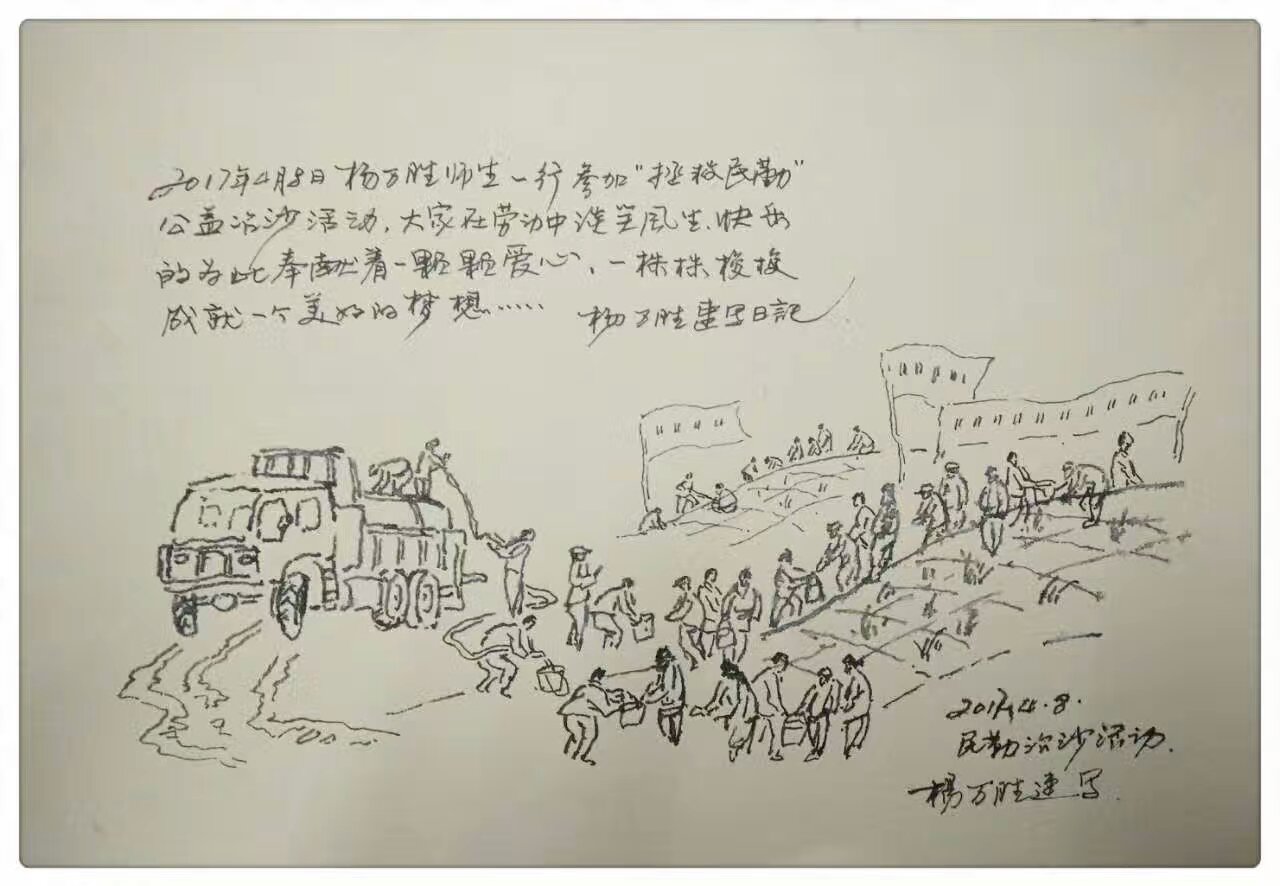 2017年4月8日杨万胜师生一行参加"拯救民勤"
公益治沙活动，大家在劳动中谈笑风生、快乐
的为此奉献着一颗颗爱心、一株株梭梭
成就一个美好的梦想……  杨万胜速写日記
2017.4.8.
民勤治沙活动.
楊万胜速写.